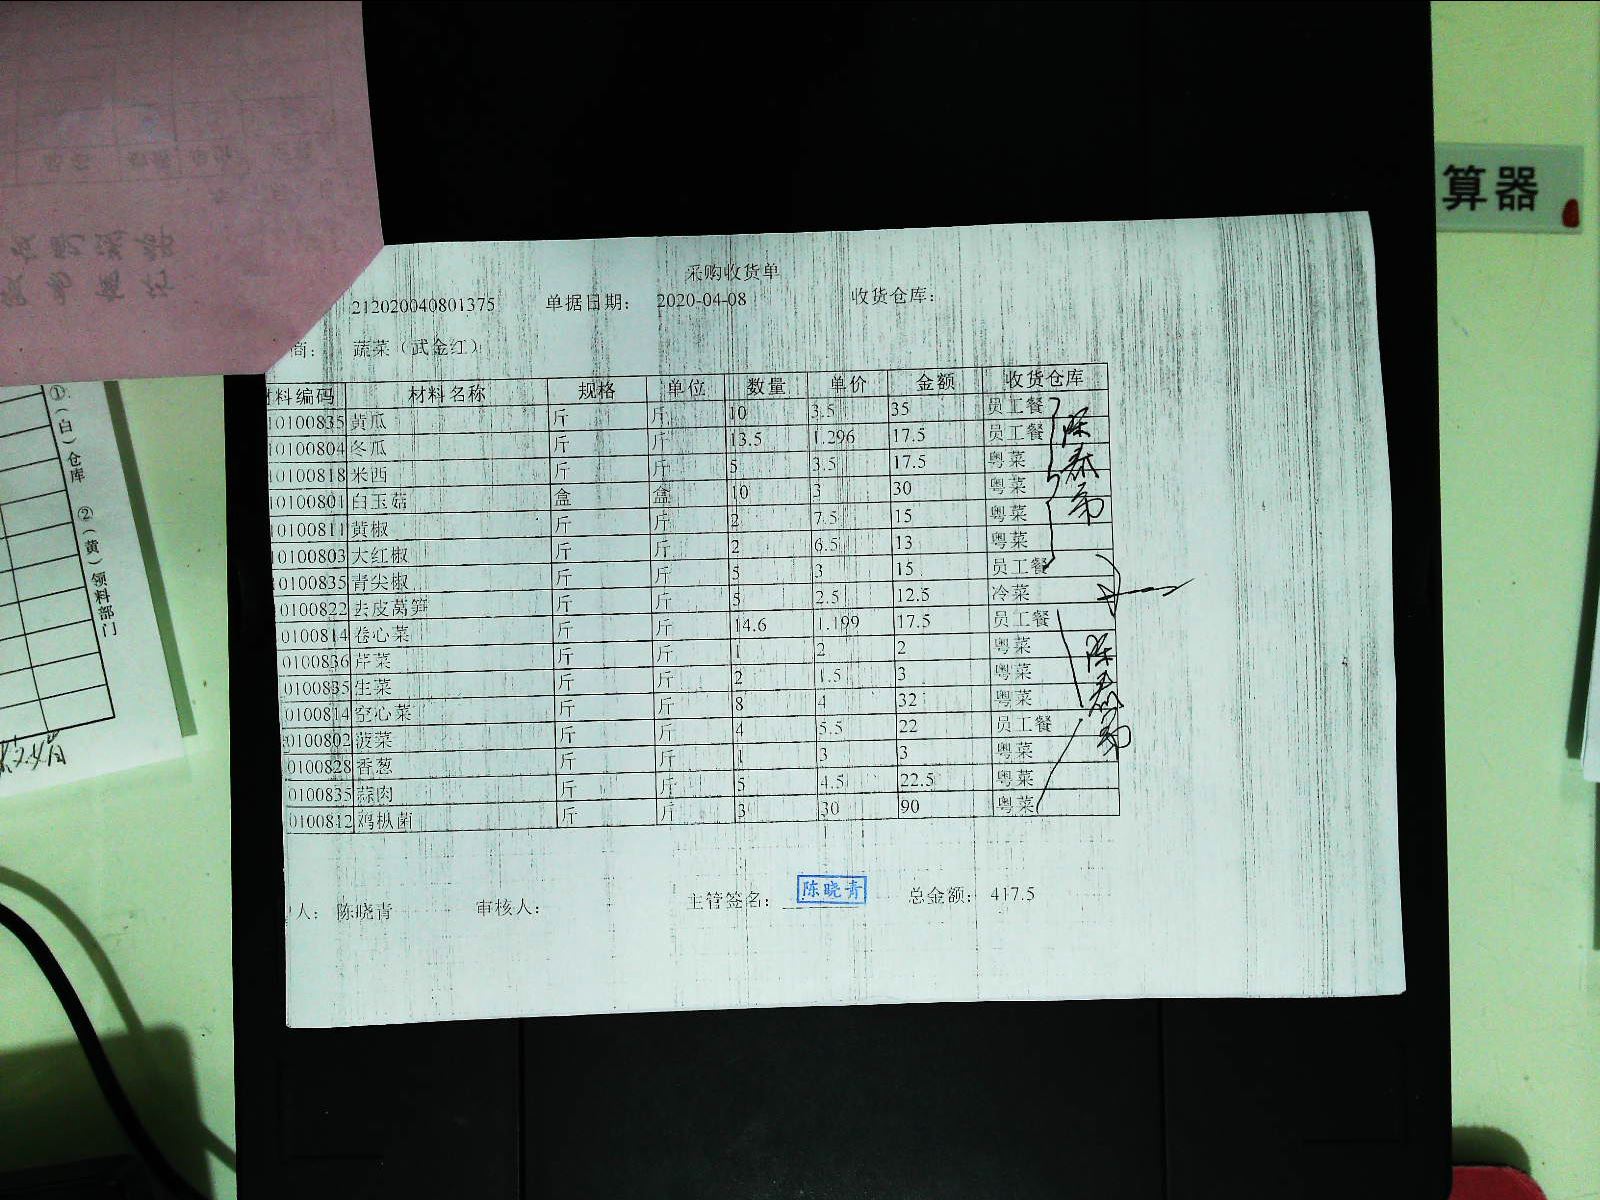 算器
采购收货单
212020040801375 单据日期： 2020-04-08 收货仓库：
商： 蔬菜（武金红）
材料编码 材料名称 规格 单位 数量 单价 金额 收货仓库
10100835 黄瓜 斤 斤 10 3.5 35 员工餐
10100804 冬瓜 斤 斤 13.5 1.296 17.5 员工餐
10100818 米西 斤 斤 5 3.5 17.5 粤菜
10100801 白玉菇 盒 盒 10 3 30 粤菜
10100811 黄椒 斤 斤 2 7.5 15 粤菜
10100803 大红椒 斤 斤 2 6.5 13 粤菜
10100835 青尖椒 斤 斤 5 3 15 员工餐
10100822 去皮莴笋 斤 斤 5 2.5 12.5 冷菜
0100814 卷心菜 斤 斤 14.6 1.199 17.5 员工餐
0100836 芹菜 斤 斤 1 2 2 粤菜
0100835 生菜 斤 斤 2 1.5 3 粤菜
0100814 空心菜 斤 斤 8 4 32 粤菜
0100802 菠菜 斤 斤 4 5.5 22 员工餐
0100828 香葱 斤 斤 1 3 3 粤菜
0100835 蒜肉 斤 斤 5 4.5 22.5 粤菜
0100812 鸡枞菌 斤 斤 3 30 90 粤菜
人： 陈晓青 审核人： 主管签名： 陈晓青 总金额： 417.5
①（白）仓库 ②（黄）领料部门